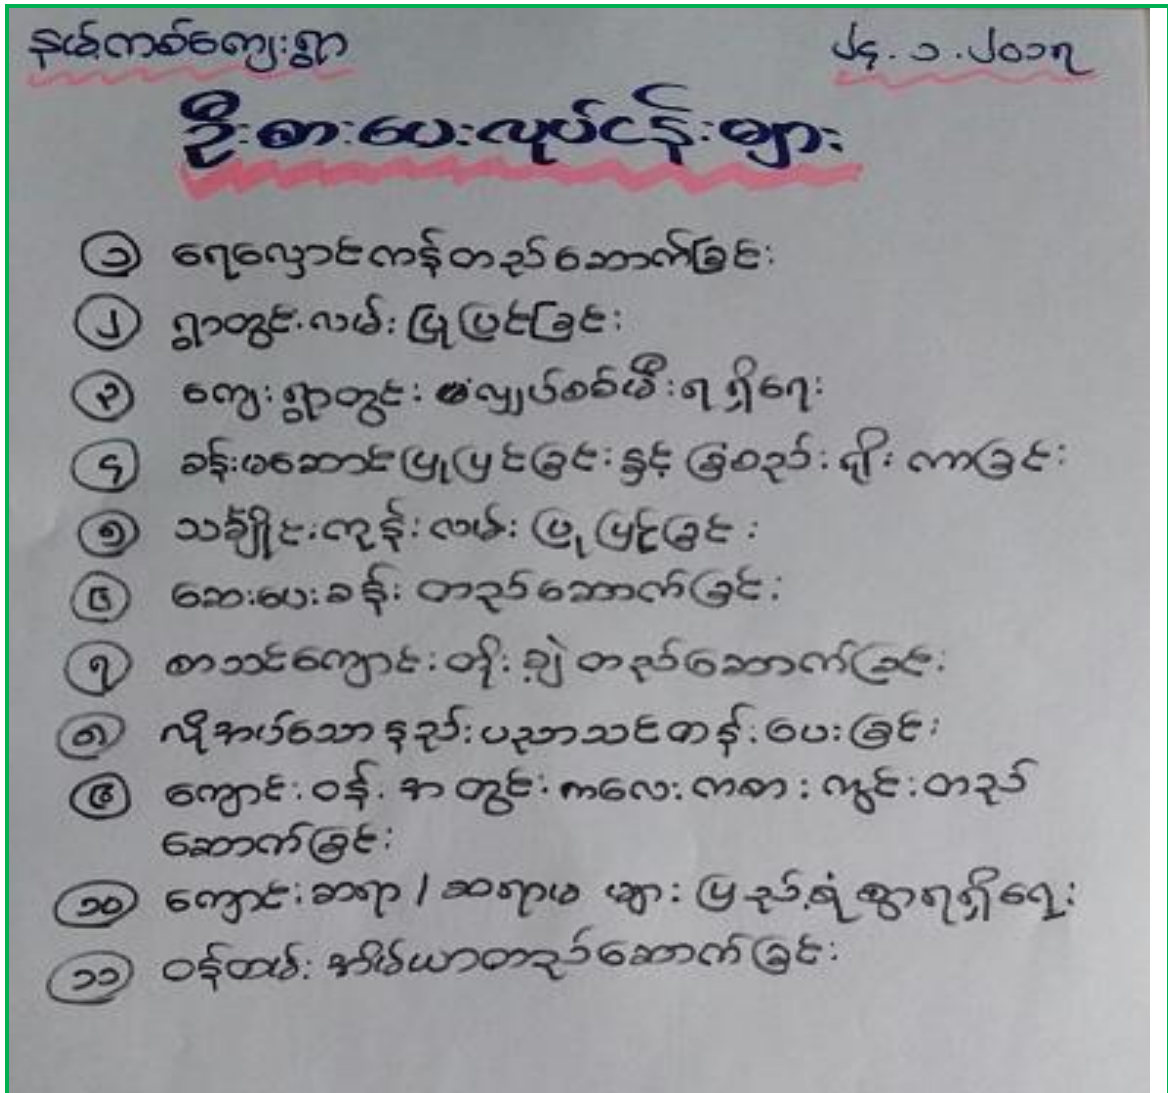 နယ်ကစ်ကျေးရွာ ၂၄.၁.၂၀၁၇
ဦးစားပေးလုပ်ငန်းများ
၁ ရေလှောင်ကန်တည်ဆောက်ခြင်း
၂ ရွာတွင်းလမ်းပြုပြင်ခြင်း
၃ ကျေးရွာတွင်း လျှပ်စစ်မီးရရှိရေး
၄ ခန်းမဆောင်ပြုပြင်ခြင်းနှင့် ခြံစည်းရိုးကာခြင်း
၅ သင်္ချိုင်းကုန်းလမ်းပြုပြင်ခြင်း
၆ ဆေးပေးခန်းတည်ဆောက်ခြင်း
၇ စာသင်ကျောင်းတိုးချဲ့တည်ဆောက်ခြင်း
၈ လိုအပ်သောနည်းပညာသင်တန်းပေးခြင်း
၉ ကျောင်းဝန်းအတွင်းကလေးကစားကွင်းတည်
ဆောက်ခြင်း
၁၀ ကျောင်းဆရာ/ဆရာမများပြည့်စုံစွာရရှိရေး
၁၁ ဝန်ထမ်းအိမ်ယာတည်ဆောက်ခြင်း